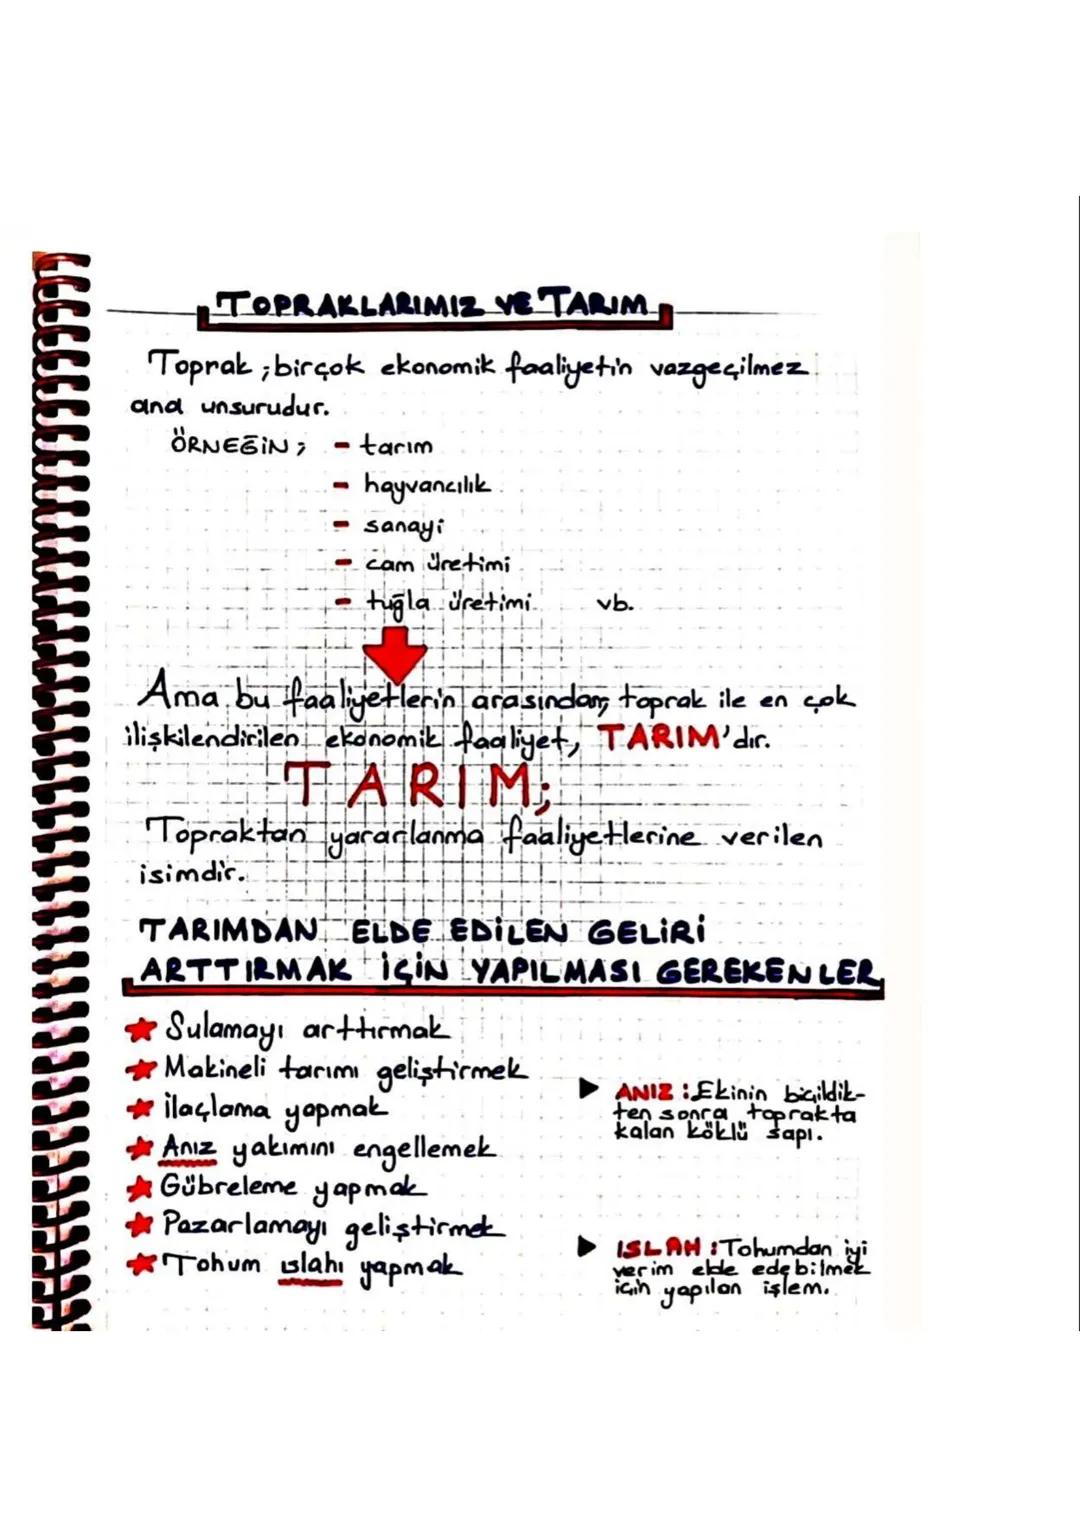 TOPRAKLARIMIZ VE TARIM
Toprak ; birçok ekonomik faaliyetin vazgeçilmez
ana unsurudur.
ÖRNEĞİN ; - tarım
- hayvancılık
- sanayi
- cam üretimi
- tuğla üretimi vb.
Ama bu faaliyetlerin arasından, toprak ile en çok
ilişkilendirilen ekonomik faaliyet, TARIM'dır.
TARIM;
Topraktan yararlanma faaliyetlerine verilen
isimdir.
TARIMDAN ELDE EDİLEN GELİRİ
ARTTIRMAK İÇİN YAPILMASI GEREKENLER
Sulamayı arttırmak
Makineli tarımı geliştirmek
İlaçlama yapmak
Anız yakımını engellemek
Gübreleme yapmak
Pazarlamayı geliştirmek
Tohum ıslahı yapmak
ANIZ : Ekinin biçildik-
ten sonra toprakta
kalan köklü sapı.
ISLAH : Tohumdan iyi
verim elde edebilmek
için yapılan işlem.